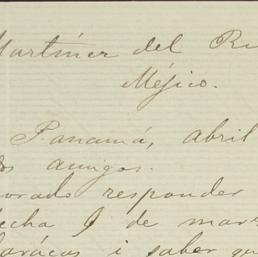 Martínez del Ri
Méjico.
Panamá, abril
os amigos.
orado responder
echa 9 de mar
Carácas i saber qu